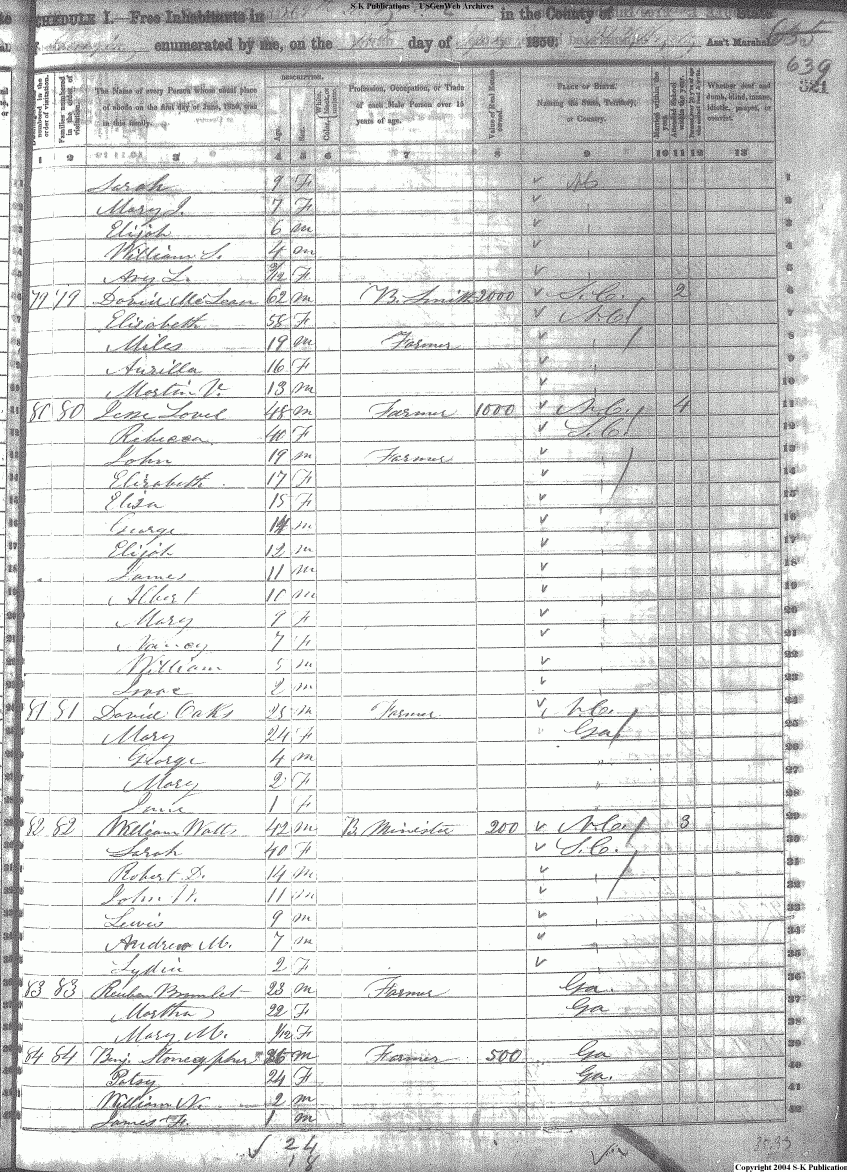 S-K Publications - USGenWeb Archives
SCHEDULE I.—Free Inhabitants in in the County of State
enumerated by me, on the day of 1850. Ass't Marshal.
639
DESCRIPTION.
The Name of every Person whose usual place of abode on the first day of June, 1850, was in this family.
Age.
Sex.
Profession, Occupation, or Trade of each Male Person over 15 years of age.
Value of Real Estate owned.
PLACE OF BIRTH. Naming the State, Territory, or Country.
Whether deaf and dumb, blind, insane, idiotic, pauper, or convict.
1 2 3 4 5 6 7 8 9 10 11 12 13
Sarah 9 F 1
Mary J. 7 F 2
Elijah 6 m 3
William S. 4 m 4
Avy L. F 5
79 79 David McLean 62 m B. Smith 2000 S.C. 2 6
Elizabeth 58 F N.C. 7
Miles 19 m Farmer 8
Aurilla 16 F 9
Martin V. 13 m 10
80 80 Jesse Lovel 48 m Farmer 1000 N.C. 4 11
Rebecca 40 F S.C. 12
John 19 m Farmer 13
Elizabeth 17 F 14
Eliza 15 F 15
George 14 m 16
Elijah 12 m 17
James 11 m 18
Albert 10 m 19
Mary 9 F 20
Nancy 7 F 21
William 5 m 22
Isaac 2 m 23
81 81 David Oaks 25 m Farmer N.C. 24
Mary 24 F Ga 25
George 4 m 26
Mary 2 F 27
Jane 1 F 28
82 82 William Watts 42 m B. Minister 200 N.C. 3 29
Sarah 40 F S.C. 30
Robert D. 14 m 31
John W. 11 m 32
Lewis 9 m 33
Andrew M. 7 m 34
Lydia 2 F 35
83 83 Reuben Bramlet 23 m Farmer Ga. 36
Martha 22 F Ga 37
Mary M. F 38
84 84 Benj. Stonecypher 26 m Farmer 500 Ga 39
Patsy 24 F Ga. 40
William N. 2 m 41
James F. 1 m 42
24
18
Copyright 2004 S-K Publication